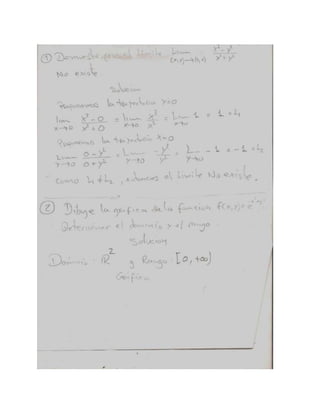 ① Demuestre que el límite lim (x,y)→(0,0) x²-y² / x²+y²
No existe.
Solución
Proponemos la trayectoria y=0
lim x→0 x²-0 / x²+0 = lim x→0 x²/x² = lim x→0 1 = 1 = L₁
Proponemos la trayectoria x=0
lim y→0 0-y² / 0+y² = lim y→0 -y²/y² = lim y→0 -1 = -1 = L₂
como L₁≠L₂, entonces el límite No existe.
② Dibuje la gráfica de la función f(x,y)=
Determinar el dominio y el rango.
Solución
Dominio: ℝ² y Rango: [0,+∞)
Gráfica